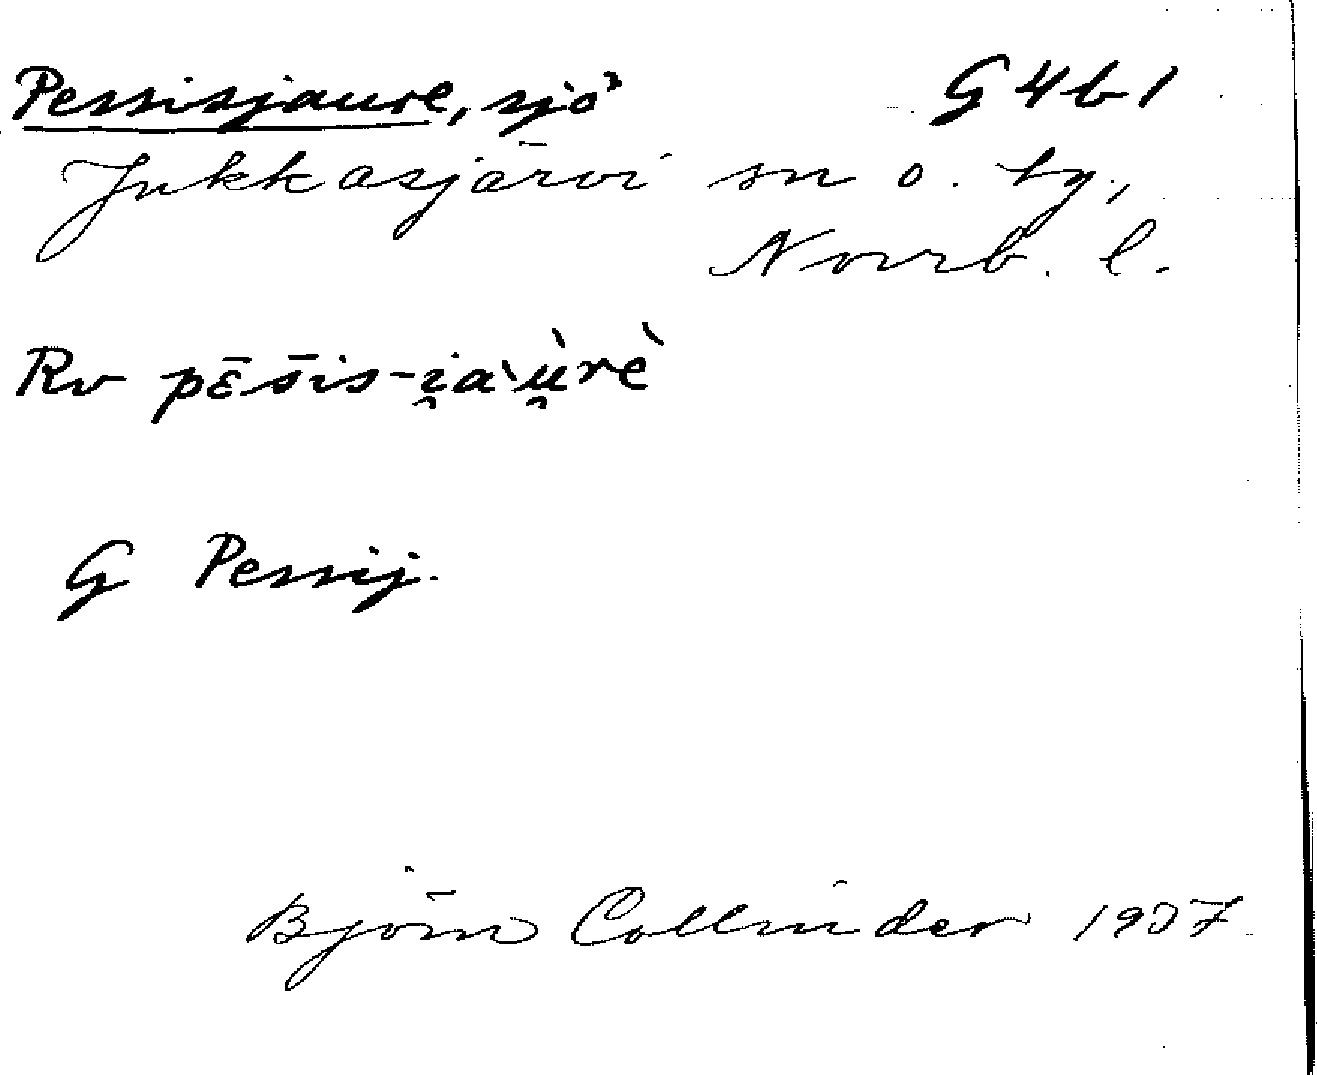 Pessisjaure, sjö G4b1
Jukkasjärvi sn o. tg,
Norrb. l.
Rv pɛ̄šis-i̯a`u̯̇rè
G Pessij.
Björn Collinder 1937